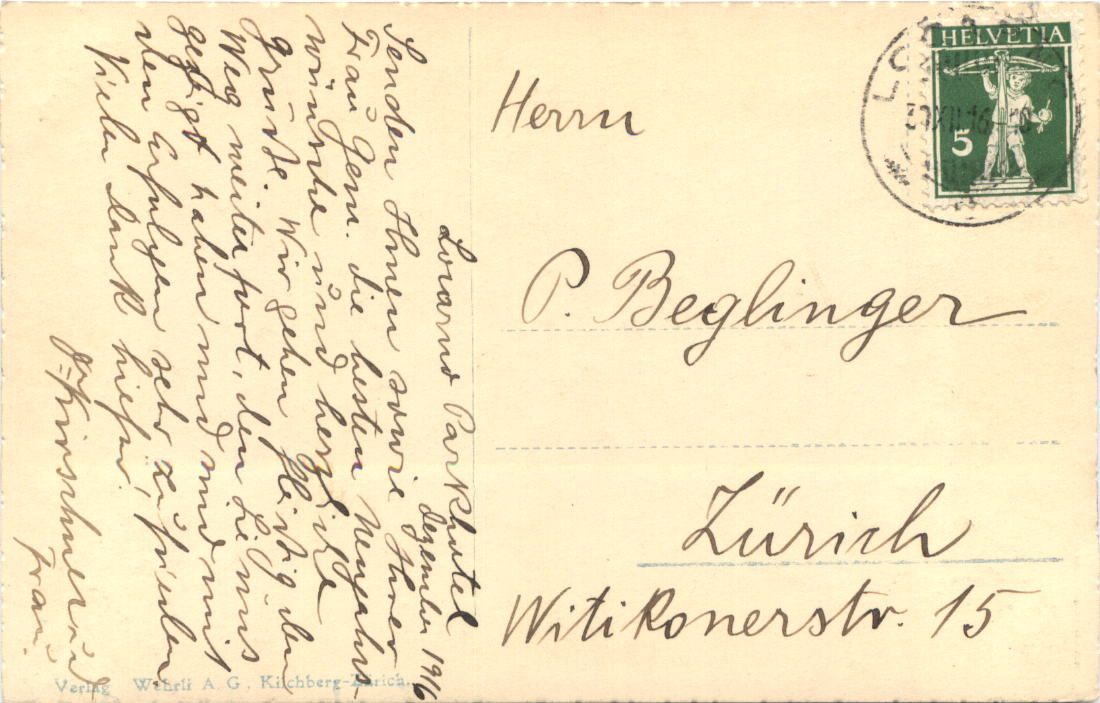 Locarno Parkhotel
Dezember 1916
Senden Ihnen sowie Ihrer
Frau Gem. die besten Neujahrs-
wünsche und herzliche
Grüsse. Wir gehen fleissig den
Weg weiter fort, den Sie uns
gezeigt haben und sind mit
den Erfolgen sehr zufrieden
Vielen Dank hiefür.
und
Frau.
Herrn
P. Beglinger
Zürich
Witikonerstr. 15
HELVETIA
5
XII.16
Verlag Wehrli A. G., Kilchberg-Zürich.